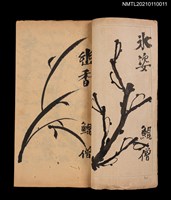 NMTL20210110011
冰姿
鯤僧
幽香
鯤僧